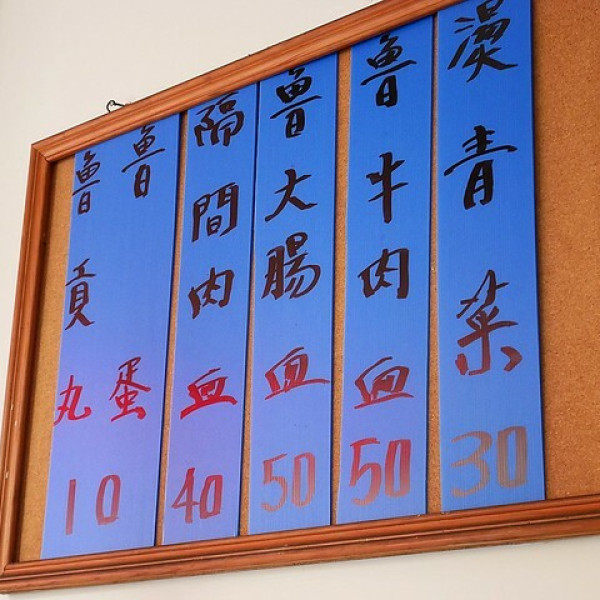 燙青菜 30
魯牛肉血 50
魯大腸血 50
隔間肉血 40
魯蛋
魯貢丸
10